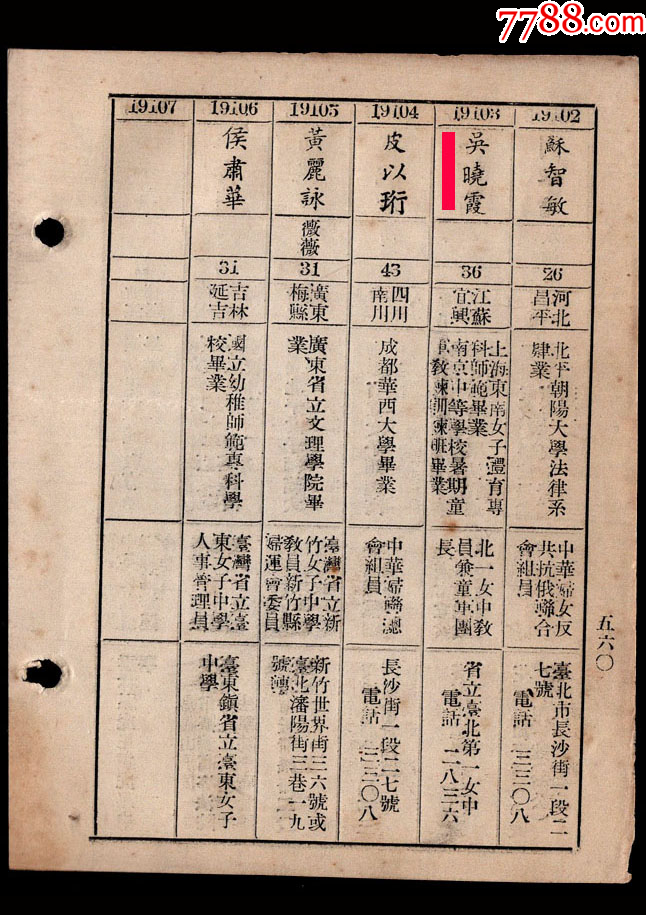 7788.com
中国收藏热线
19102
蘇智敏
26
河北
昌平
北平朝陽大學法律系
肄業
中華婦女反
共抗俄聯合
會組員
臺北市長沙街一段二
七號
電話 二三三〇八
19103
吳曉霞
36
江蘇
宜興
上海東南女子體育專
科師範畢業
南京中等學校暑期童
軍教練訓練班畢業
北一女中教
員兼童軍團
長
省立臺北第一女中
電話 二八三六
19104
皮以珩
43
四川
南川
成都華西大學畢業
中華婦聯總
會組員
長沙街一段二七號
電話 二三三〇八
19105
黃麗詠
薇薇
31
廣東
梅縣
廣東省立文理學院畢
業
臺灣省立新
竹女子中學
教員新竹縣
婦運會委員
新竹世界街三六號或
臺北瀋陽街三巷一九
號轉
19106
侯肅華
31
吉林
延吉
國立幼稚師範專科學
校畢業
臺灣省立臺
東女子中學
人事管理員
臺東鎮省立臺東女子
中學
19107
五六〇